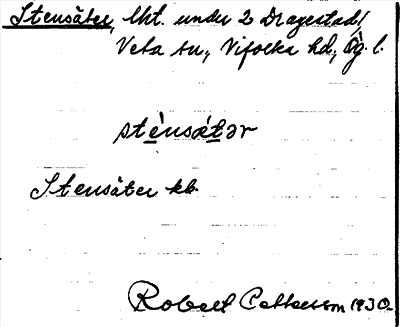 Stensäter, lht. under 2 Dragestad,
Veta sn., Vifolka hd, Ög. l.
stènsǽtər
Stensäter kb.
Robert Pettersson 1930